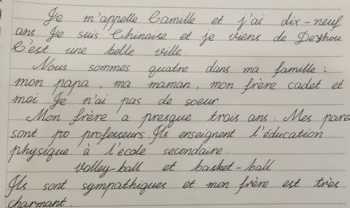 Je m'appelle Camille et j'ai dix-neuf
ans. Je suis Chinoise et je viens de Dezhou
C'est une belle ville
Nous sommes quatre dans ma famille :
mon papa, ma maman, mon frère cadet et
moi Je n'ai pas de soeur
Mon frère a presque trois ans. Mes pare
sont pro professeurs Ils enseignent l'éducation
physique à l'école secondaire
volley-ball et basket-ball
Ils sont sympathiques et mon frère est très
charmant.